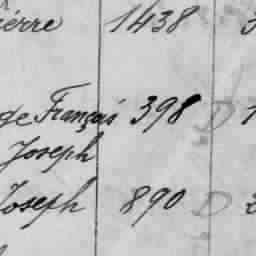 1438
François 398 D
Joseph
Joseph 890 D